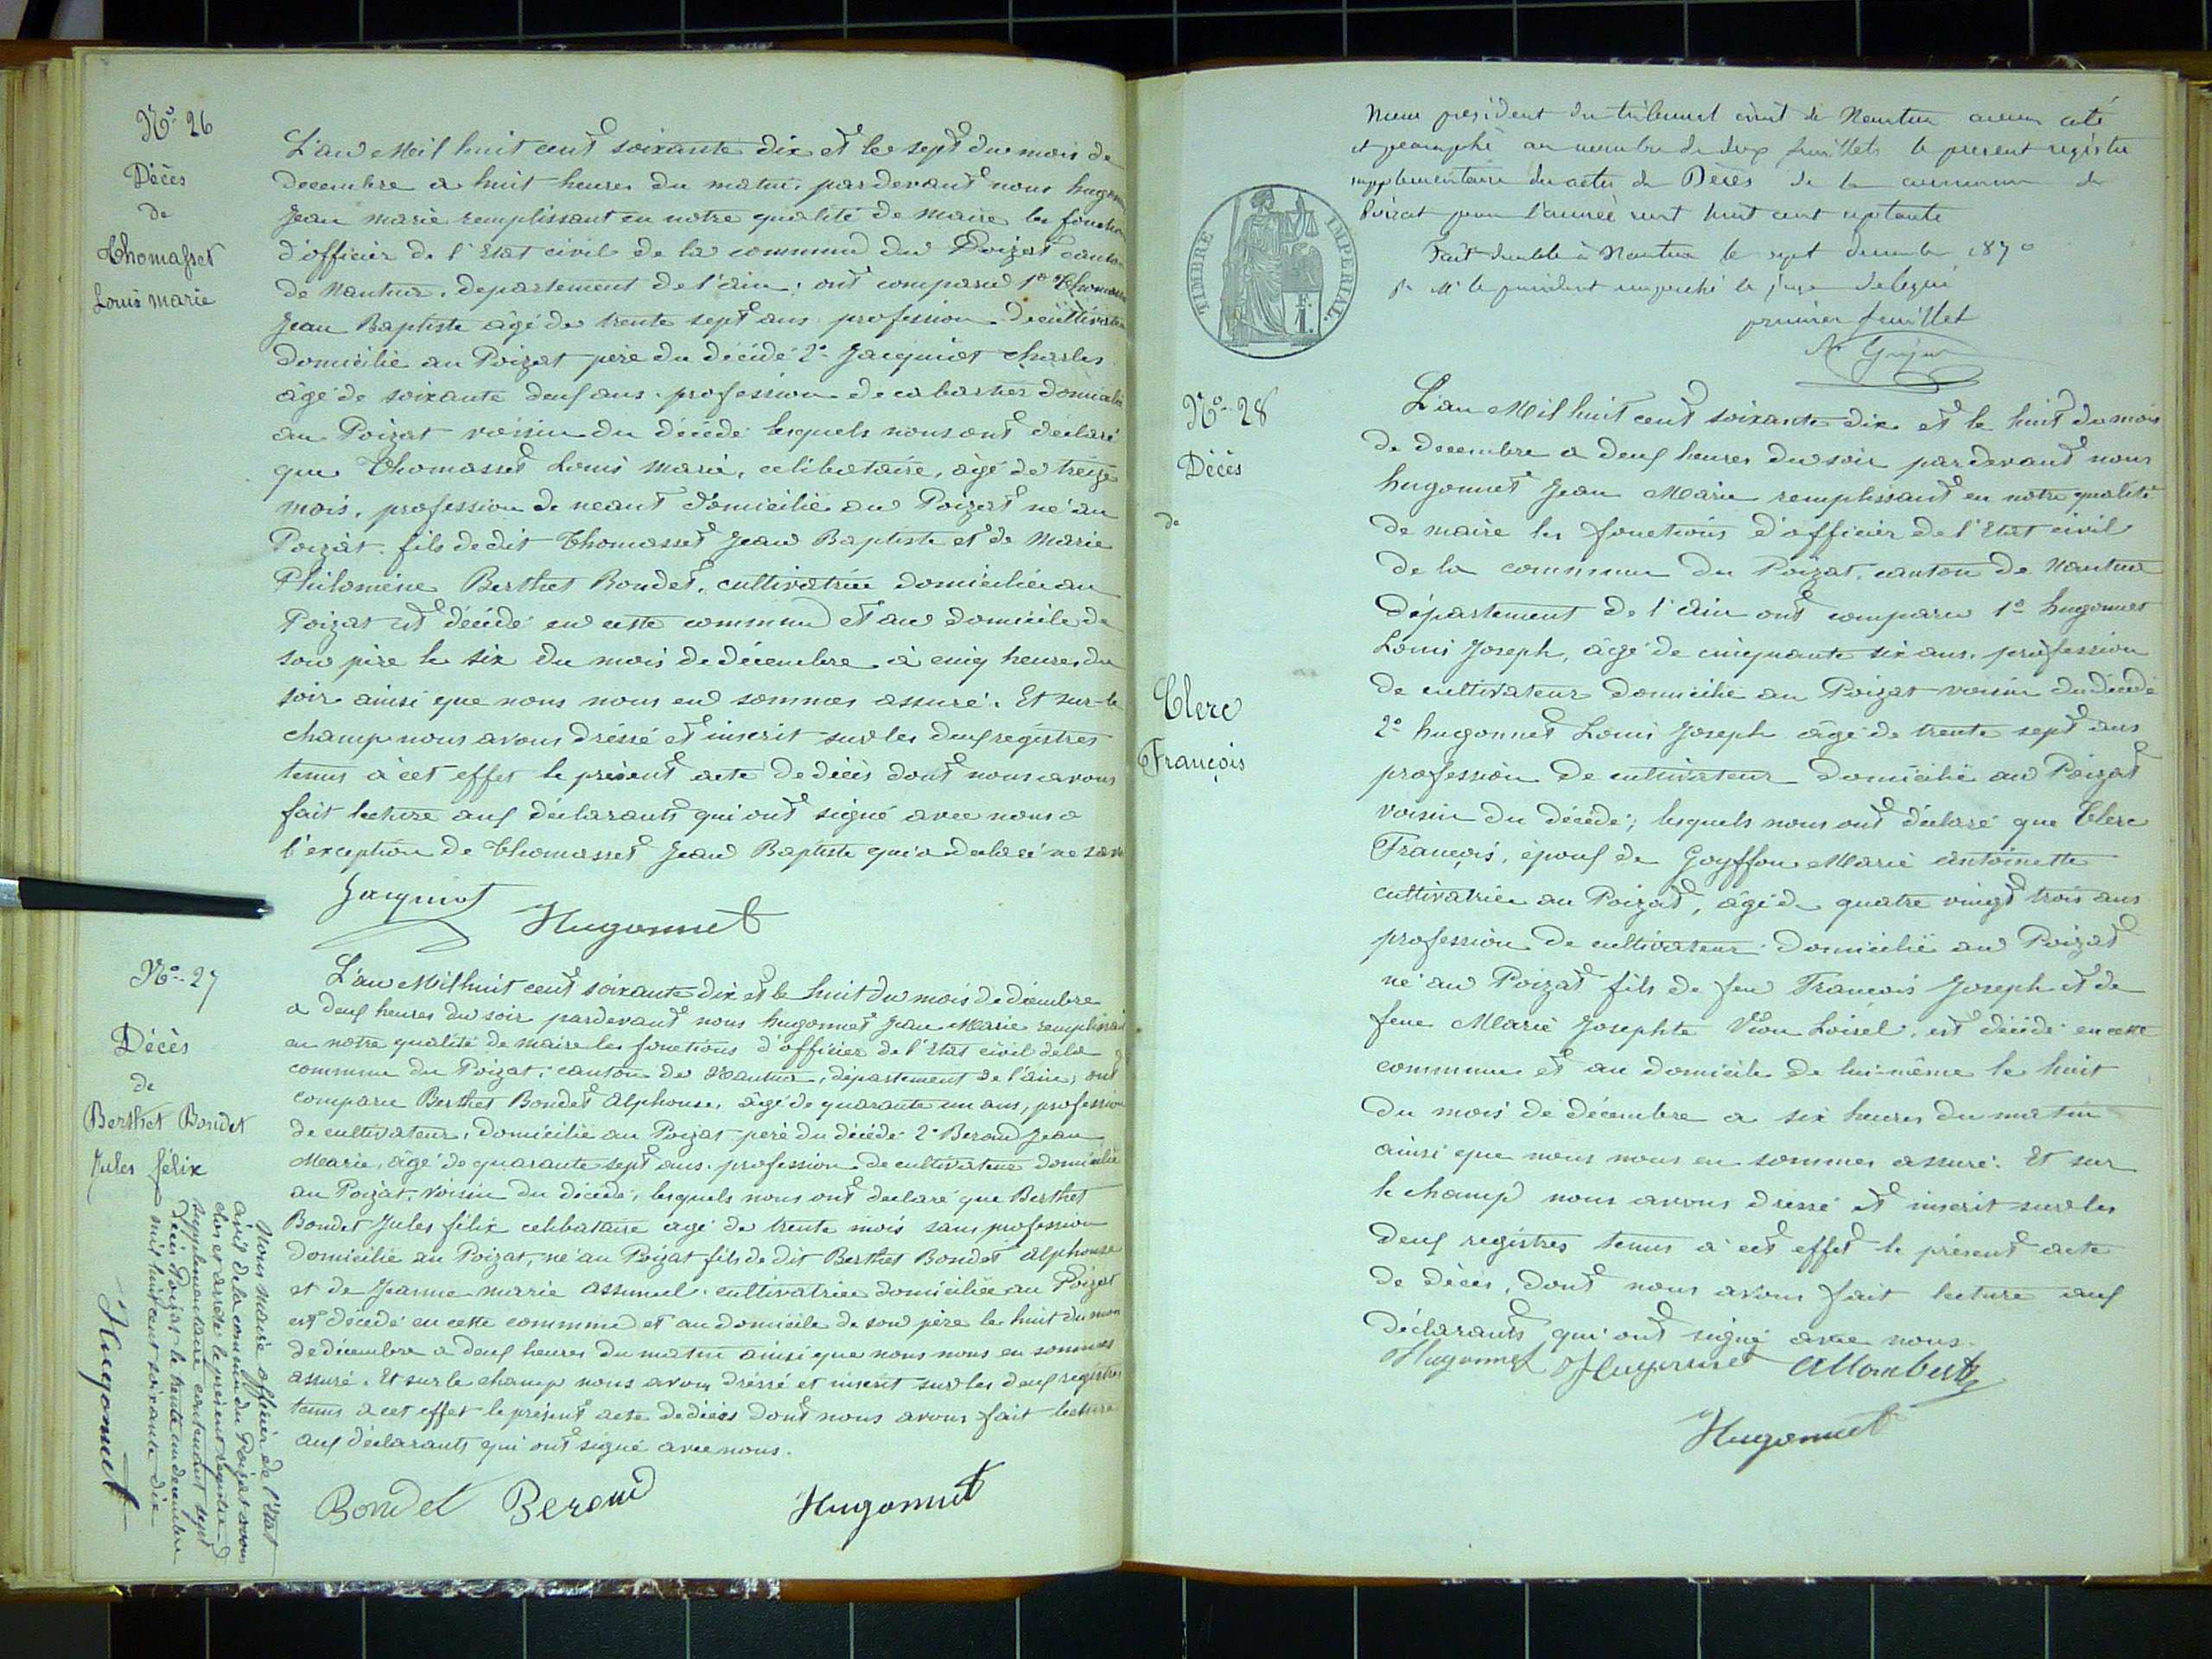 N° 26
Décès
de
Thomasset
Louis marie
L'an Mil huit cent soixante dix et le sept du mois de
decembre a huit heures du matin, pardevant nous hugonnet
Jean marie remplissant en notre qualité de maire les fonctions
d'officier de l'Etat civil de la commune du Poizat canton
de Nantua, departement de l'ain, ont comparu 1° Thomasset
Jean Baptiste âgé de trente sept ans profession de cultivateur
domicilié au Poizat père du décédé 2° Jacquiot charles
âgé de soixante deux ans profession de cabartier domicilié
au Poizat voisin du décédé lesquels nous ont déclaré
que Thomasset Louis Marie, celibataire, âgé de treize
mois, profession de neant domicilié au Poizat né au
Poizat fils de dit Thomasset Jean Baptiste et de Marie
Philomène Berthet Bondet, cultivatrice domiciliée au
Poizat est décédé en cette commune et au domicile de
son père le six du mois de décembre à cinq heures du
soir ainsi que nous nous en sommes assuré. Et sur-le
champ nous avons dressé et inscrit sur les deux registres
tenus à cet effet le présent acte de décès dont nous avons
fait lecture aux déclarants qui ont signé avec nous a
l'exception de Thomasset Jean Baptiste qui a declaré ne savoir
Jacquiot
Hugonnet
N° 27
Décès
de
Berthet Bondet
Jules félix
L'an Mil huit cent soixante dix et le huit du mois de décembre
a deux heures du soir pardevant nous hugonnet Jean Marie remplissant
en notre qualité de maire les fonctions d'officier de l'Etat civil de la
commune du Poizat, canton de Nantua, département de l'ain, ont
comparu Berthet Bondet Alphonse, âgé de quarante un ans, profession
de cultivateur, domicilié au Poizat père du décédé 2° Beroud Jean
Marie, âgé de quarante sept ans profession de cultivateur domicilié
au Poizat, voisin du décédé, lesquels nous ont declaré que Berthet
Bondet Jules félix celibataire agé de trente mois sans profession
domicilié au Poizat, né au Poizat fils de dit Berthet Bondet Alphonse
et de Jeanne marie cultivatrice domiciliée au Poizat
est décédé en cette commune et au domicile de son père le huit du mois
de décembre a deux heures du matin ainsi que nous nous en sommes
assuré. Et sur le champ nous avons dressé et inscrit sur les deux registres
tenus à cet effet le présent acte de décès dont nous avons fait lecture
aux déclarants qui ont signé avec nous.
Bondet Beroud Hugonnet
Nous maire officier de l'Etat
civil de la commune du Poizat avons
clos et arreté le present registre
supplementaire contenant sept
décès Poizat le trente un decembre
mil huit cent soixante dix
Hugonnet
TIMBRE IMPERIAL
1 F.
Nous président du tribunal civil de Nantua avons coté
et paraphé au nombre de deux feuillets le present registre
supplementaire des actes de Décès de la commune du
Poizat pour l'année huit cent septante
Fait double à Nantua le sept decembre 1870
Pr Mr le président empeché le juge delegué
premier feuillet
N° 28
Décès
de
Clerc
François
L'an Mil huit cent soixante dix et le huit du mois
de decembre a deux heures du soir pardevant nous
hugonnet Jean Marie remplissant en notre qualité
de maire les fonctions d'officier de l'Etat civil
de la commune du Poizat, canton de Nantua
département de l'ain ont comparu 1° hugonnet
Louis Joseph, âgé de cinquante six ans, profession
de cultivateur domicilié au Poizat voisin du décédé
2° hugonnet Louis Joseph âgé de trente sept ans
profession de cultivateur domicilié au Poizat
voisin du décédé; lesquels nous ont déclaré que Clerc
François, époux de Goyffon Marie antoinette
cultivatrice au Poizat, âgé de quatre vingt trois ans
profession de cultivateur domicilié au Poizat
né au Poizat fils de feu François Joseph et de
feue Marie Josephte Vion Loisel, est décédé en cette
commune et au domicile de lui-même le huit
du mois de décembre a six heures du matin
ainsi que nous nous en sommes assuré. Et sur
le champ nous avons dressé et inscrit sur les
deux registres tenus à cet effet le présent acte
de décès, dont nous avons fait lecture aux
déclarants qui ont signé avec nous.
Hugonnet Hugonnet Allombert
Hugonnet